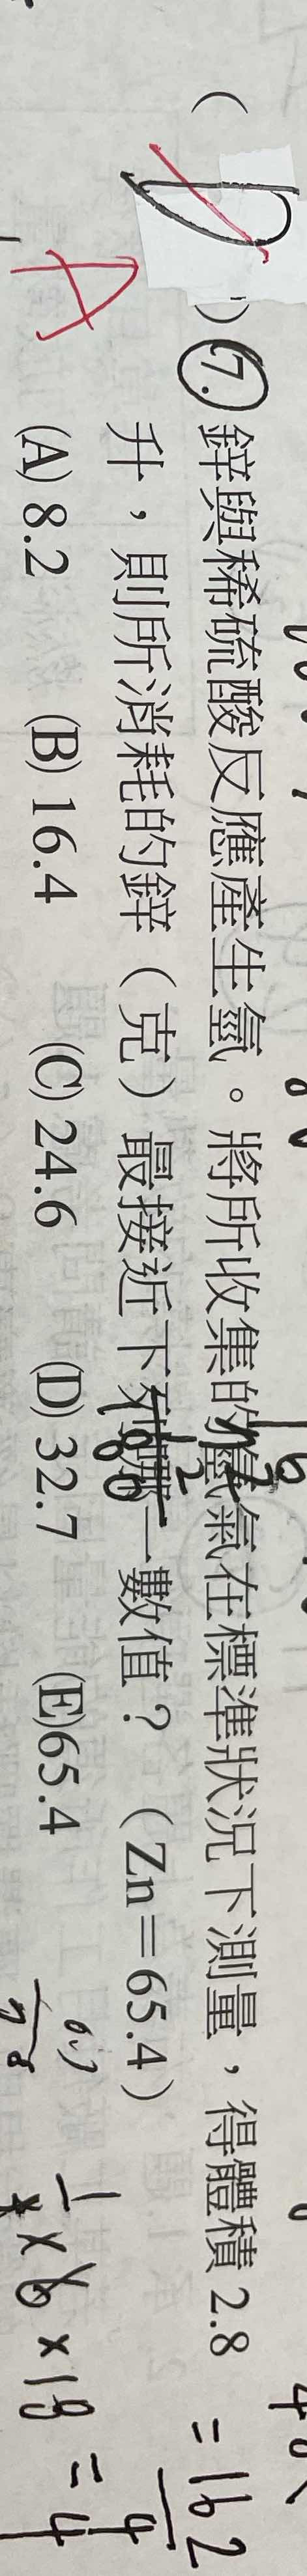 ( D ) 7. 鋅與稀硫酸反應產生氫。將所收集的氫氣在標準狀況下測量，得體積 2.8
升，則所消耗的鋅（克）最接近下列哪一數值？（Zn＝65.4）
A
(A) 8.2 (B) 16.4 (C) 24.6 (D) 32.7 (E)65.4